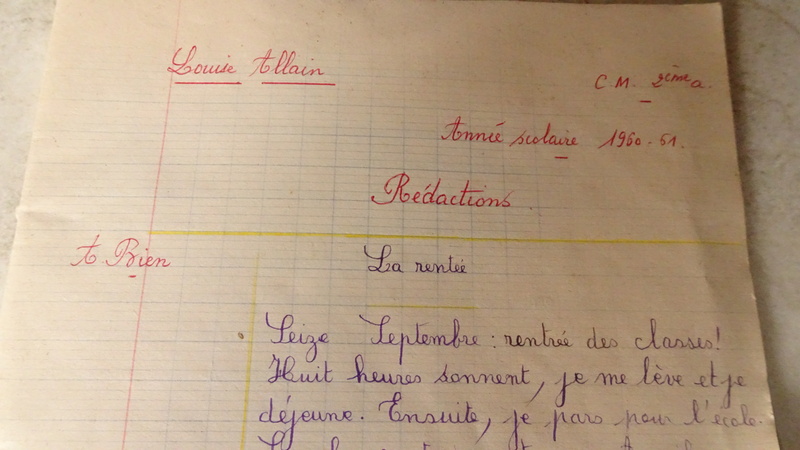 Louise Allain
C.M. 2ème a.
Année scolaire 1960-61.
Rédactions
A. Bien
La rentée
Seize Septembre : rentrée des classes!
Huit heures sonnent, je me lève et je
déjeune. Ensuite, je pars pour l'école.